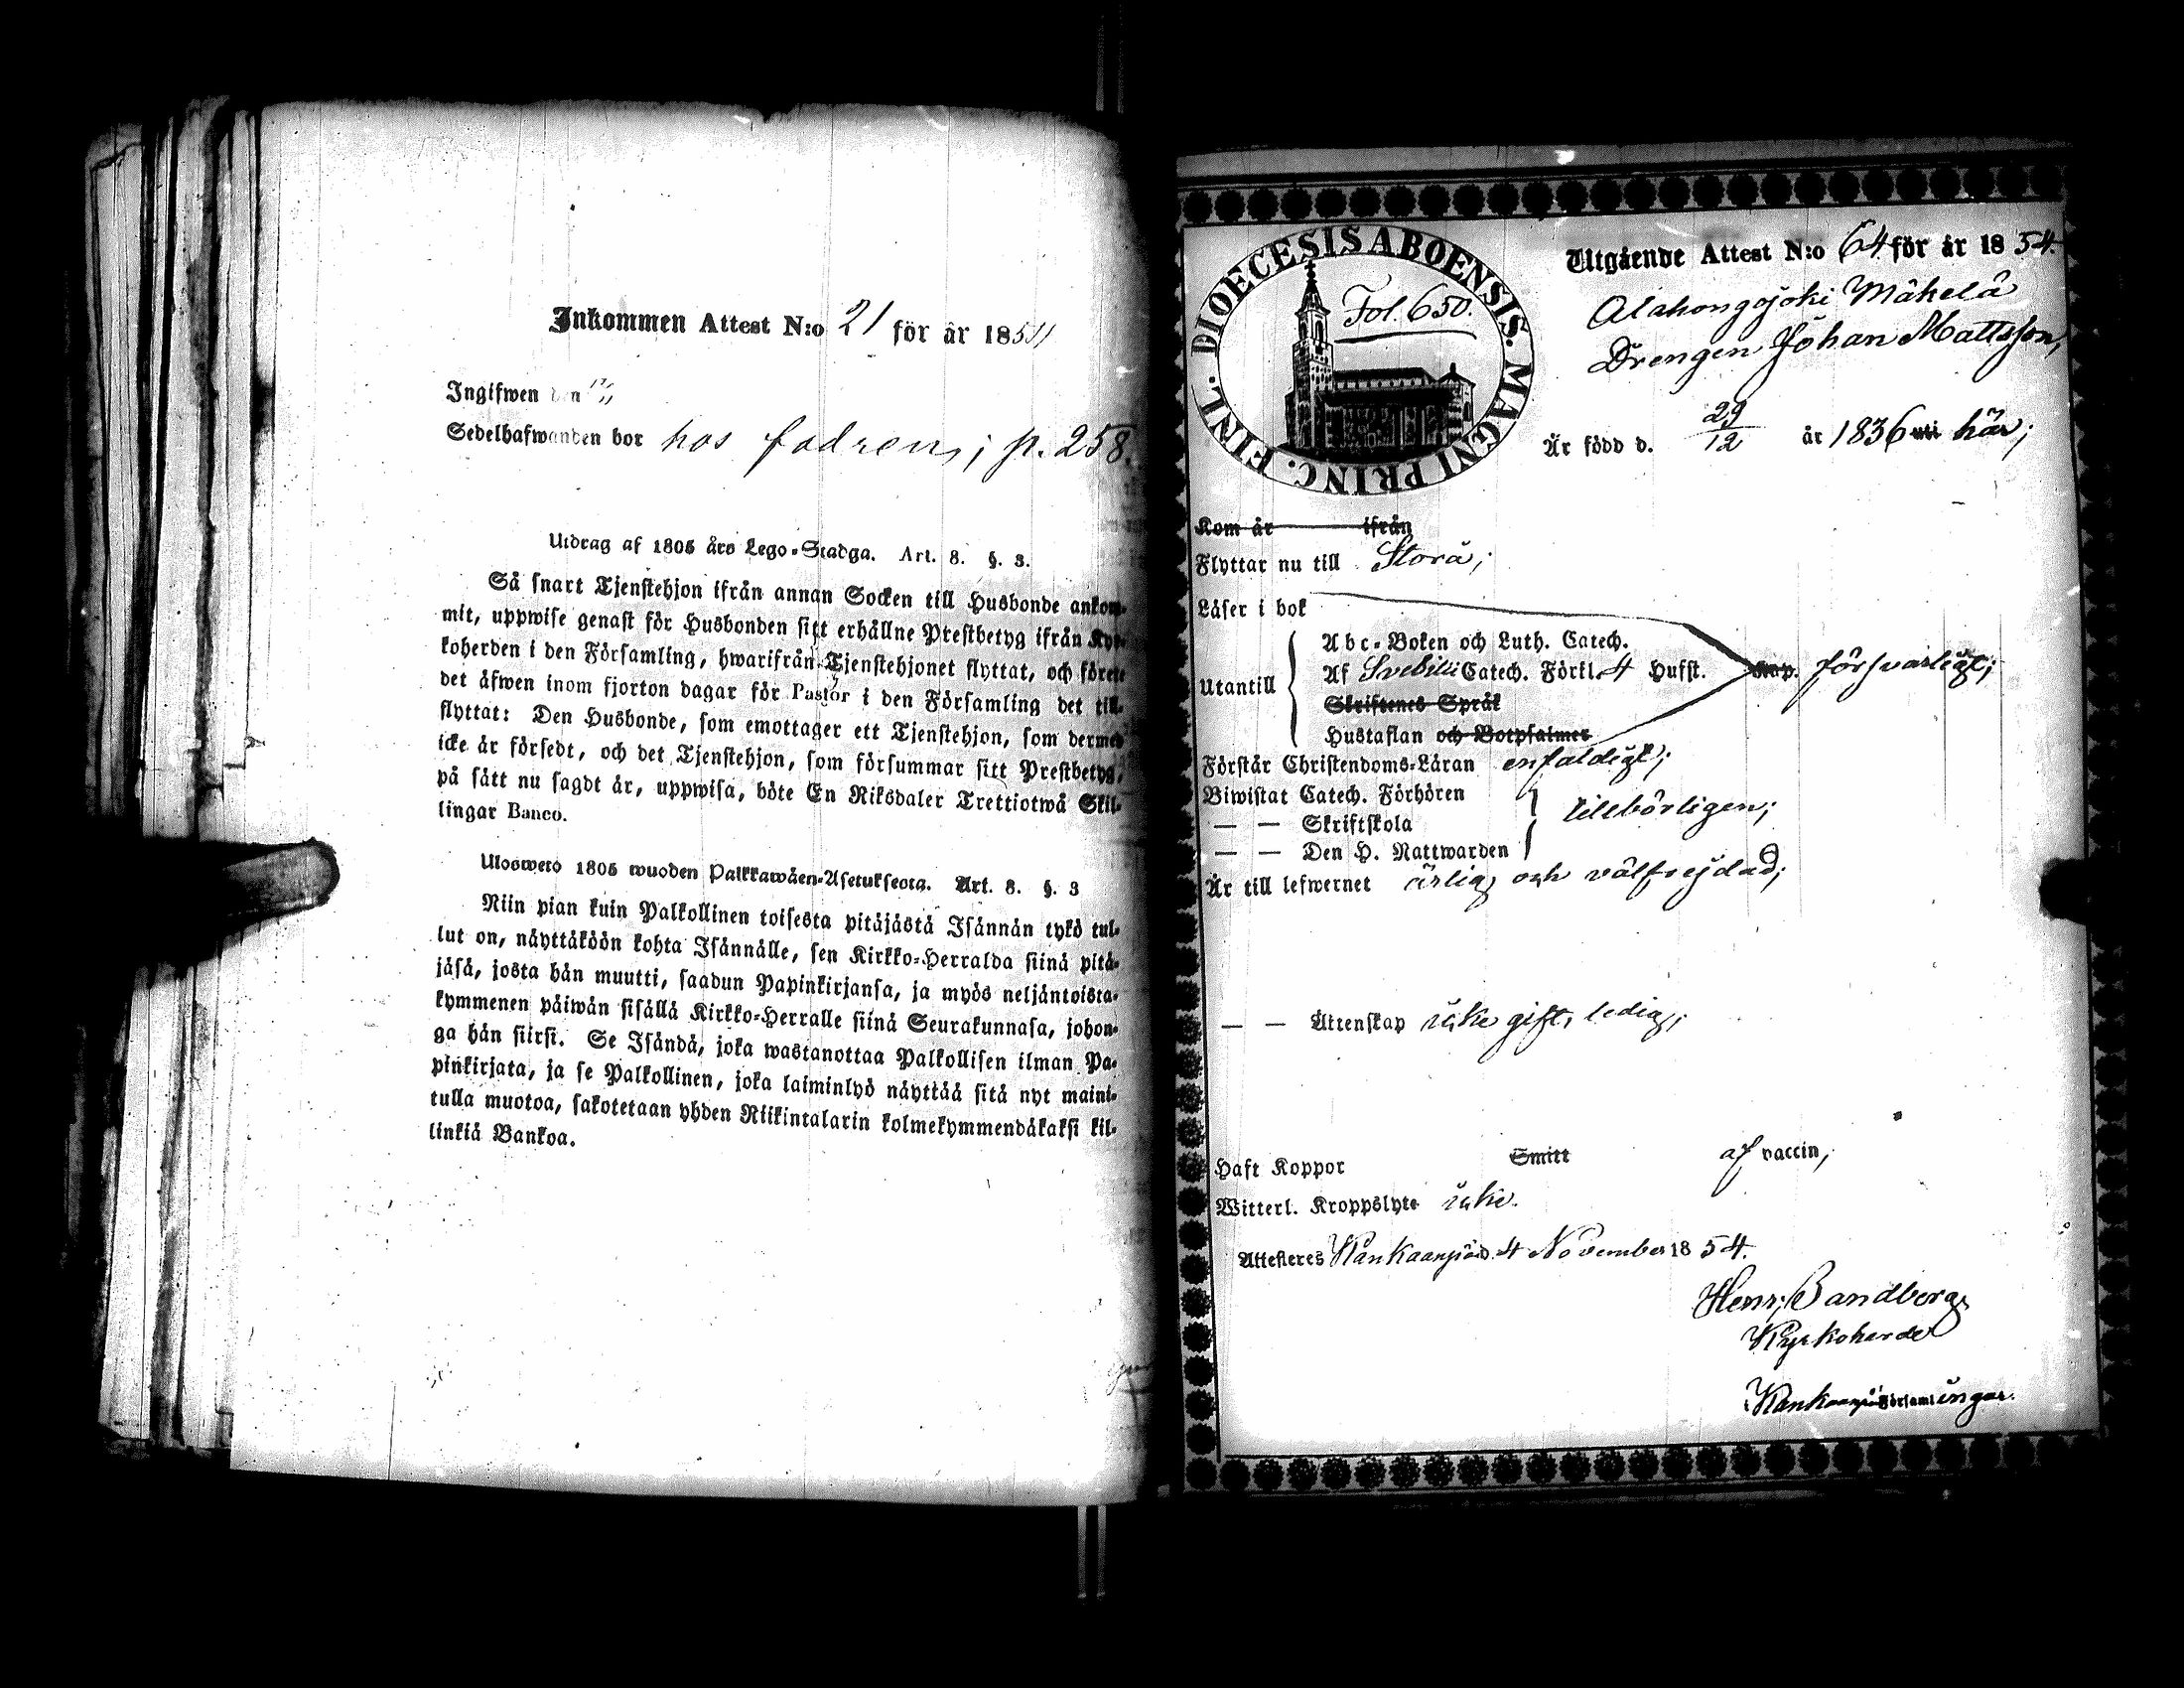 Inkommen Attest N:o 21 för år 1854
Ingifwen den
Sedelhafwanden bor hos fadren; p. 258.
Utdrag af 1805 års Lego-Stadga. Art. 8. §. 3.
Så snart Tjenstehjon ifrån annan Socken till Husbonde ankom-
mit, uppwise genast för Husbonden sitt erhållne Prestbetyg ifrån Kyr-
koherden i den Församling, hwarifrån Tjenstehjonet flyttat, och förete
det äfwen inom fjorton dagar för Pastor i den Församling det till-
flyttat: Den Husbonde, som emottager ett Tjenstehjon, som dermed
icke är försedt, och det Tjenstehjon, som försummar sitt Prestbetyg,
på sätt nu sagdt är, uppwisa, böte En Riksdaler Trettiotwå Skil-
lingar Banco.
Ulosweto 1805 wuoden Palkkawäen-Asetuksesta. Art. 8. §. 3
Niin pian kuin Palkollinen toisesta pitäjästä Isännän tykö tul-
lut on, näyttäköön kohta Isännälle, sen Kirkko-Herralda siinä pitä-
jäsä, josta hän muutti, saadun Papinkirjansa, ja myös neljäntoista-
kymmenen päiwän sisällä Kirkko-Herralle siinä Seurakunnasa, johon-
ga hän siirsi. Se Isändä, joka wastanottaa Palkollisen ilman Pa-
pinkirjata, ja se Palkollinen, joka laiminlyö näyttää sitä nyt maini-
tulla muotoa, sakotetaan yhden Riikintalarin kolmekymmendäkaksi kil-
linkiä Bankoa.
DIOECESIS ABOENSIS. MAGNI PRINC. FINL.
Fol. 650.
Utgående Attest N:o 64 för år 1854.
Alahongojoki Mäkelä
Drengen Johan Mattsson,
Är född d. 29/12 år 1836 uti här;
Kom år ifrån
Flyttar nu till Storå;
Läser i bok
Utantill
Abc-Boken och Luth. Catech.
Af Svebilii Catech. Förkl. 4 Hufst. Kap. försvarligt;
Skriftenes Språk
Hustaflan och Botpsalmer
Förstår Christendoms-Läran enfaldigt;
Biwistat Catech. Förhören
— — Skriftskola tillbörligen;
— — Den H. Nattwarden
Är till lefwernet ärlig och välfrejdad;
— — Ättenskap icke gift, ledig;
Haft Koppor Smitt af vaccin,
Witterl. Kroppslyte icke.
Attesteres Kankaanpää d. 4 November 1854.
Henr. Sandberg
Kyrkoherde
Kankaanpää Församlingar.